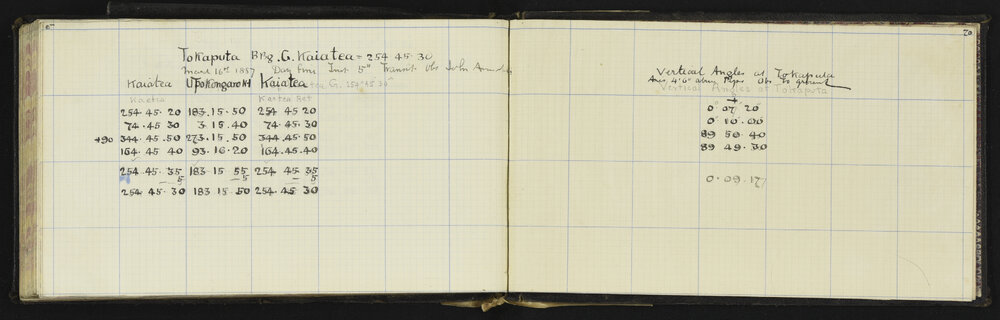 Tokaputa Brg. G. Kaiatea = 254 45 30
Day fine Inst 5" Transit Obs John
Kaiatea Kaiatea
Kaiatea Kaiatea Ref
254. 45. 20 183. 15. 50 254 45 20
74. 45 30 3 15. 40 74. 45. 30
+90 344. 45. 50 273. 15. 50 344. 45. 50
164. 45 40 93. 16. 20 164. 45. 40
254. 45. 35 183 15 55 254 45 35
5 5 5
254. 45. 30 183 15 50 254. 45. 30
70
Vertical Angles at Tokaputa
Obs to ground
Vertical Angles at Tokaputa
+
0° 07 20"
0° 10. 00
89 50. 40
89 49. 30
0. 09. 17